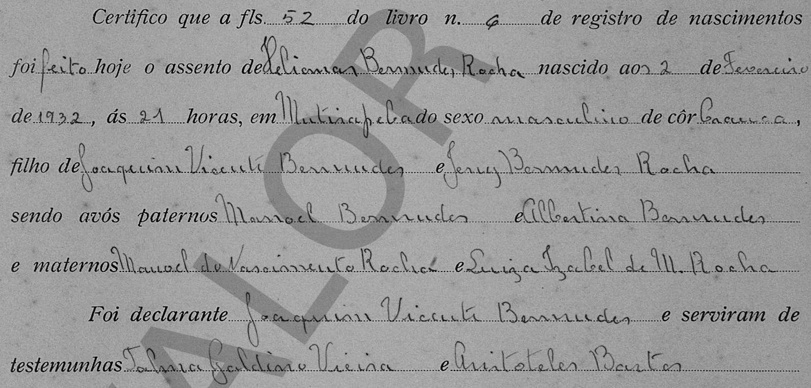 Certifico que a fls. 52 do livro n. 6 de registro de nascimentos
foi feito hoje o assento de Heliomar Bermudes Rocha nascido aos 2 de Fevereiro
de 1932, ás 21 horas, em Mutirapeba do sexo masculino de côr branca,
filho de Joaquim Vicente Bermudes e Jeny Bermudes Rocha
sendo avós paternos Manoel Bermudes e Albertina Bermudes
e maternos Manoel do Nascimento Rocha e Luiza Izabel de M. Rocha
Foi declarante Joaquim Vicente Bermudes e serviram de
testemunhas Talma Galdino Vieira e Aristoteles Bastos
ALOR